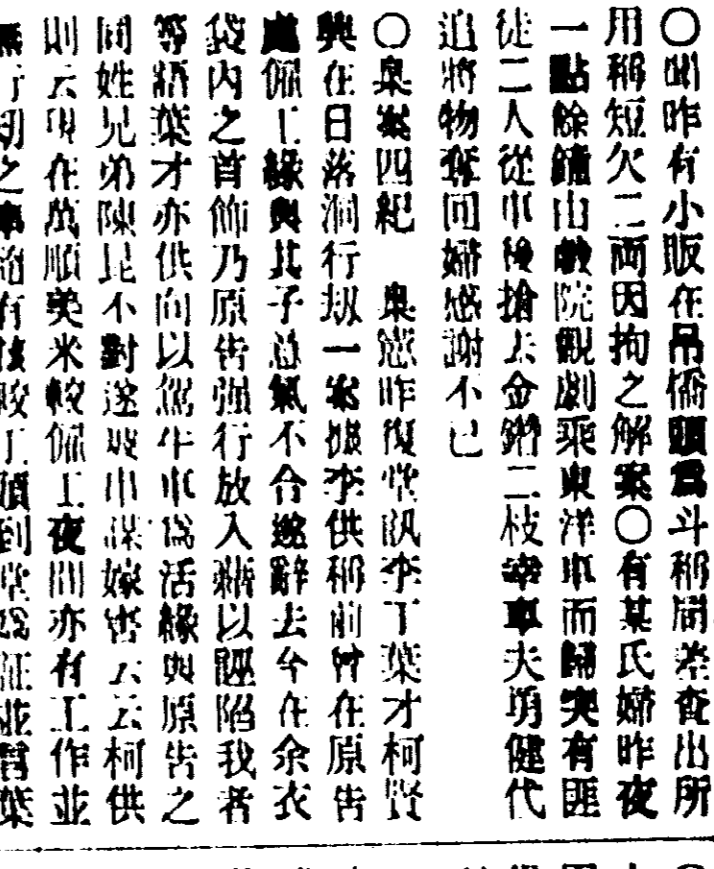 〇聞昨有小販在吊橋頭爲斗稱局差查出所
用稱短欠二兩因拘之解案〇有某氏婦昨夜
一點餘鐘由戲院觀劇乘東洋車而歸突有匪
徒二人從車後搶去金鐲二枝幸車夫勇健代
追將物奪回婦感謝不已
〇臬案四紀　臬憲昨復堂訊李丁葉才柯賢
興在日落洞行刼一案據李供稱前曾在原告
處傭工緣與其子慪氣不合遂辭去今在余衣
袋內之首飾乃原告强行放入藉以誣陷我者
等語葉才亦供向以駕牛車爲活緣與原告之
同姓兄弟陳昆不對遂被串謀嫁害云云柯供
則云現在萬順美米較傭工夜間亦有工作並
無行刼之事洽有該較工頭到堂爲証並幫葉